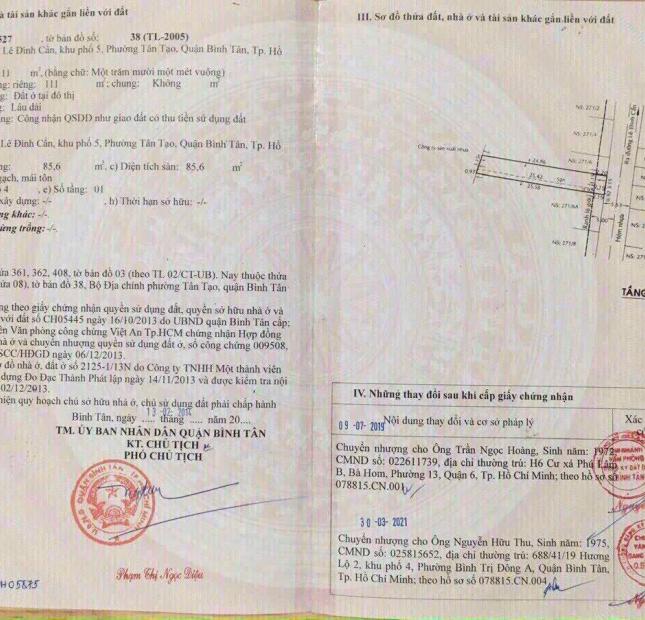 à tài sản khác gắn liền với đất
527 , tờ bản đồ số: 38 (TL-2005)
Lê Đình Cẩn, khu phố 5, Phường Tân Tạo, Quận Bình Tân, Tp. Hồ
11 m², (bằng chữ: Một trăm mười một mét vuông)
ng: riêng: 111 m²; chung: Không m²
ng: Đất ở tại đô thị
Lâu dài
ng: Công nhận QSDĐ như giao đất có thu tiền sử dụng đất
Lê Đình Cẩn, khu phố 5, Phường Tân Tạo, Quận Bình Tân, Tp. Hồ
ng: 85,6 m², c) Diện tích sàn: 85,6 m²
gạch, mái tôn
4 , e) Số tầng: 01
xây dựng: -/- , h) Thời hạn sở hữu: -/-
ng khác: -/-
ừng trồng: -/-.
ửa 361, 362, 408, tờ bản đồ 03 (theo TL 02/CT-UB). Nay thuộc thửa
ửa 08), tờ bản đồ 38, Bộ Địa chính phường Tân Tạo, quận Bình Tân
ng theo giấy chứng nhận quyền sử dụng đất, quyền sở hữu nhà ở và
với đất số CH05445 ngày 16/10/2013 do UBND quận Bình Tân cấp;
ên Văn phòng công chứng Việt An Tp.HCM chứng nhận Hợp đồng
hà ở và chuyển nhượng quyền sử dụng đất ở, số công chứng 009508,
SCC/HĐGD ngày 06/12/2013.
ơ đồ nhà ở, đất ở số 2125-1/13N do Công ty TNHH Một thành viên
dựng Đo Đạc Thành Phát lập ngày 14/11/2013 và được kiểm tra nội
02/12/2013.
hiện quy hoạch chủ sở hữu nhà ở, chủ sử dụng đất phải chấp hành
13 -02- 2014
Bình Tân, ngày ..... tháng ..... năm 20....
TM. ỦY BAN NHÂN DÂN QUẬN BÌNH TÂN
KT. CHỦ TỊCH
PHÓ CHỦ TỊCH
Phạm Thị Ngọc Diệu
H05875
III. Sơ đồ thửa đất, nhà ở và tài sản khác gắn liền với đất
NS: 271/2
Ra đường Lê Đình Cẩn
Công ty sản xuất nhựa
NS: 271/6A
NS: 271/8
Hẻm nhựa
TẦNG
IV. Những thay đổi sau khi cấp giấy chứng nhận
09 -07- 2019 Nội dung thay đổi và cơ sở pháp lý
Xác
Chuyển nhượng cho Ông Trần Ngọc Hoàng, Sinh năm: 1972,
CMND số: 022611739, địa chỉ thường trú: H6 Cư xá Phú Lâm
B, Bà Hom, Phường 13, Quận 6, Tp. Hồ Chí Minh; theo hồ sơ số
078815.CN.001
30 -03- 2021
Chuyển nhượng cho Ông Nguyễn Hữu Thu, Sinh năm: 1975,
CMND số: 025815652, địa chỉ thường trú: 688/41/19 Hương
Lộ 2, khu phố 4, Phường Bình Trị Đông A, Quận Bình Tân,
Tp. Hồ Chí Minh; theo hồ sơ số 078815.CN.004